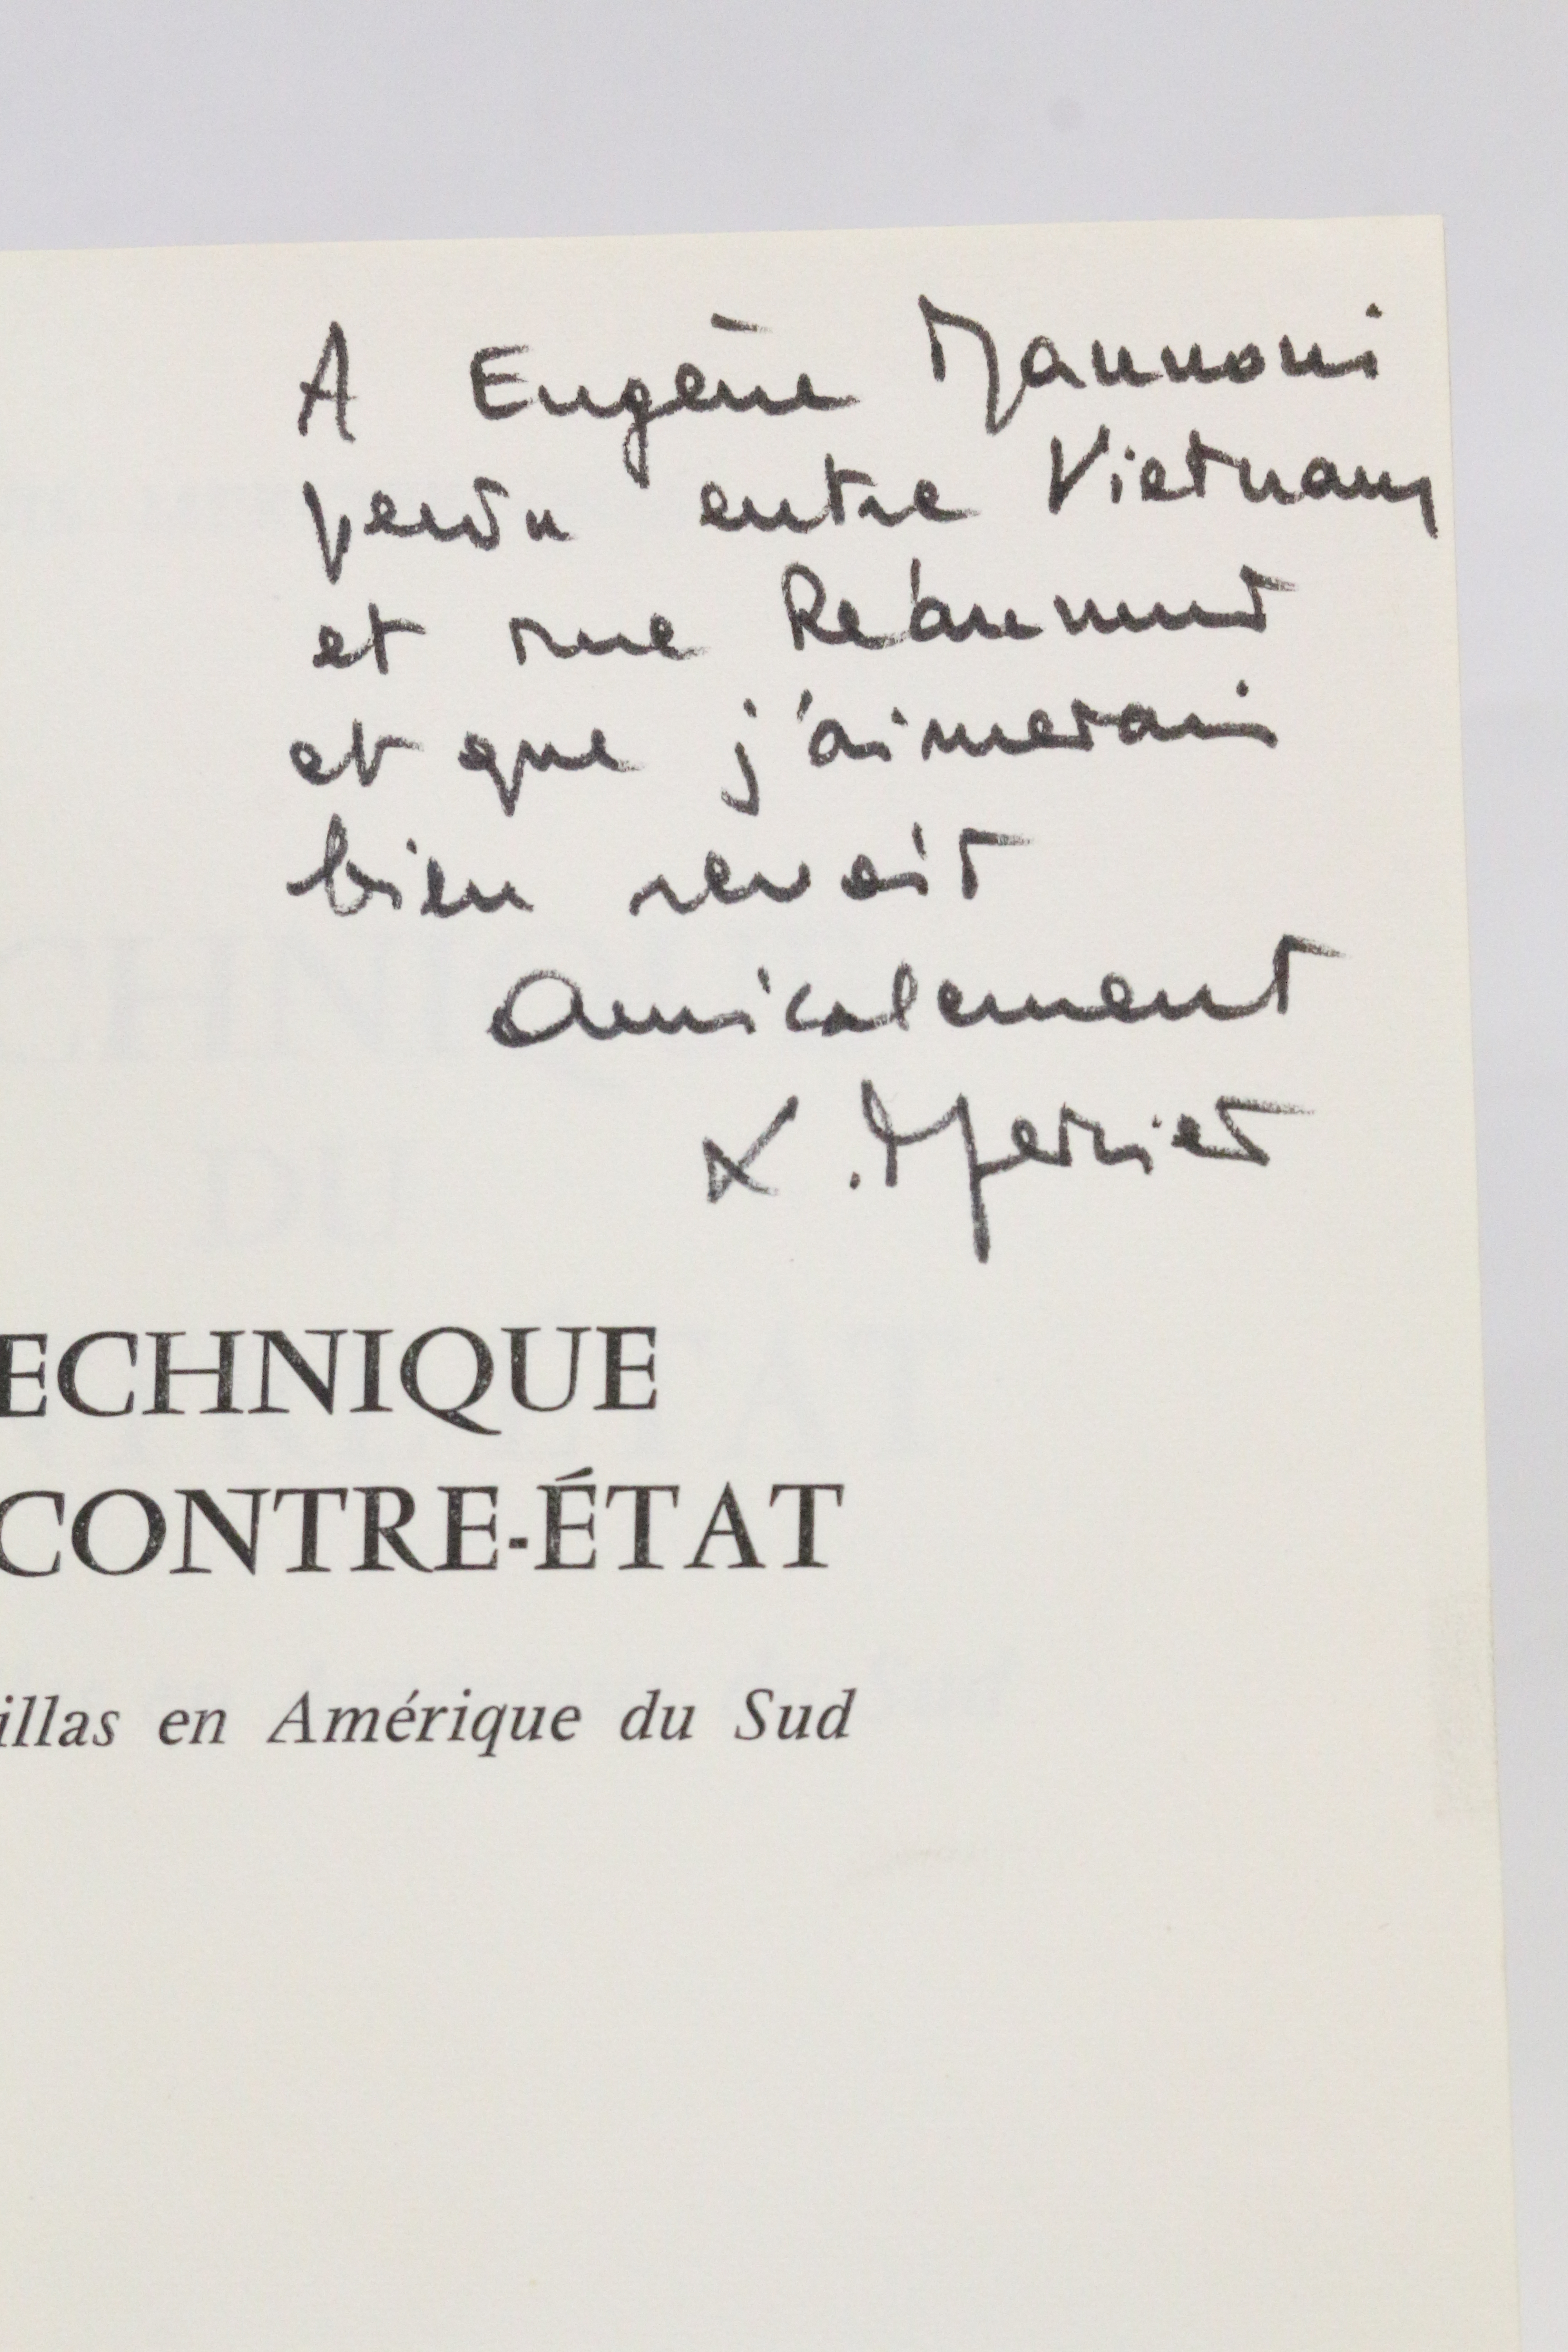 A Eugène Mannoni
perdu entre Vietnam
et rue Réaumur
et que j'aimerais
bien revoir
Amicalement
L. Mercier
ECHNIQUE
CONTRE-ÉTAT
illas en Amérique du Sud